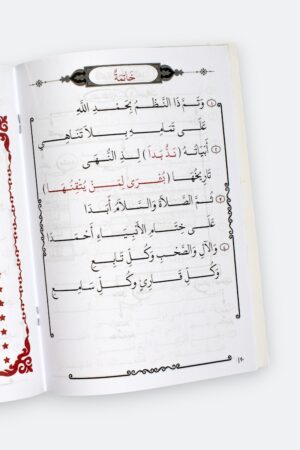 خَاتِمَةٌ
١ وَتَمَّ ذَا النَّظْمُ بِحَمْدِ اللَّهِ
عَلَى تَمَامِهِ بِلَا تَنَاهِي
٢ أَبْيَاتُهُ (نَدٌّ بَدَا) لِذِي النُّهَى
تَارِيخُهَا (بُشْرَى لِمَنْ يُتْقِنُهَا)
٣ ثُمَّ الصَّلَاةُ وَالسَّلَامُ أَبَدَا
عَلَى خِتَامِ الْأَنْبِيَاءِ أَحْمَدَا
٤ وَالْآلِ وَالصَّحْبِ وَكُلِّ تَابِعِ
وَكُلِّ قَارِئٍ وَكُلِّ سَامِعِ